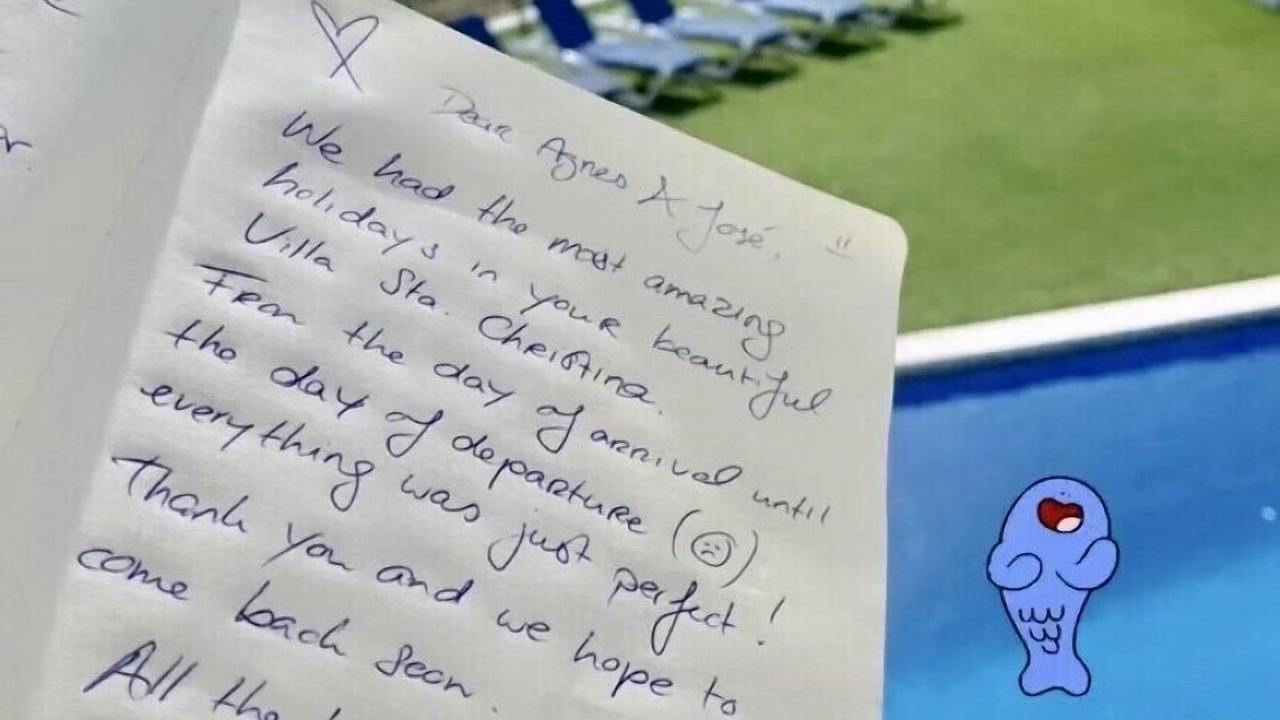 Dear Agnes & José,
We had the most amazing
holidays in your beautiful
Villa Sta. Christina.
From the day of arrival until
the day of departure (☹)
everything was just perfect!
Thank you and we hope to
come back soon.
All the